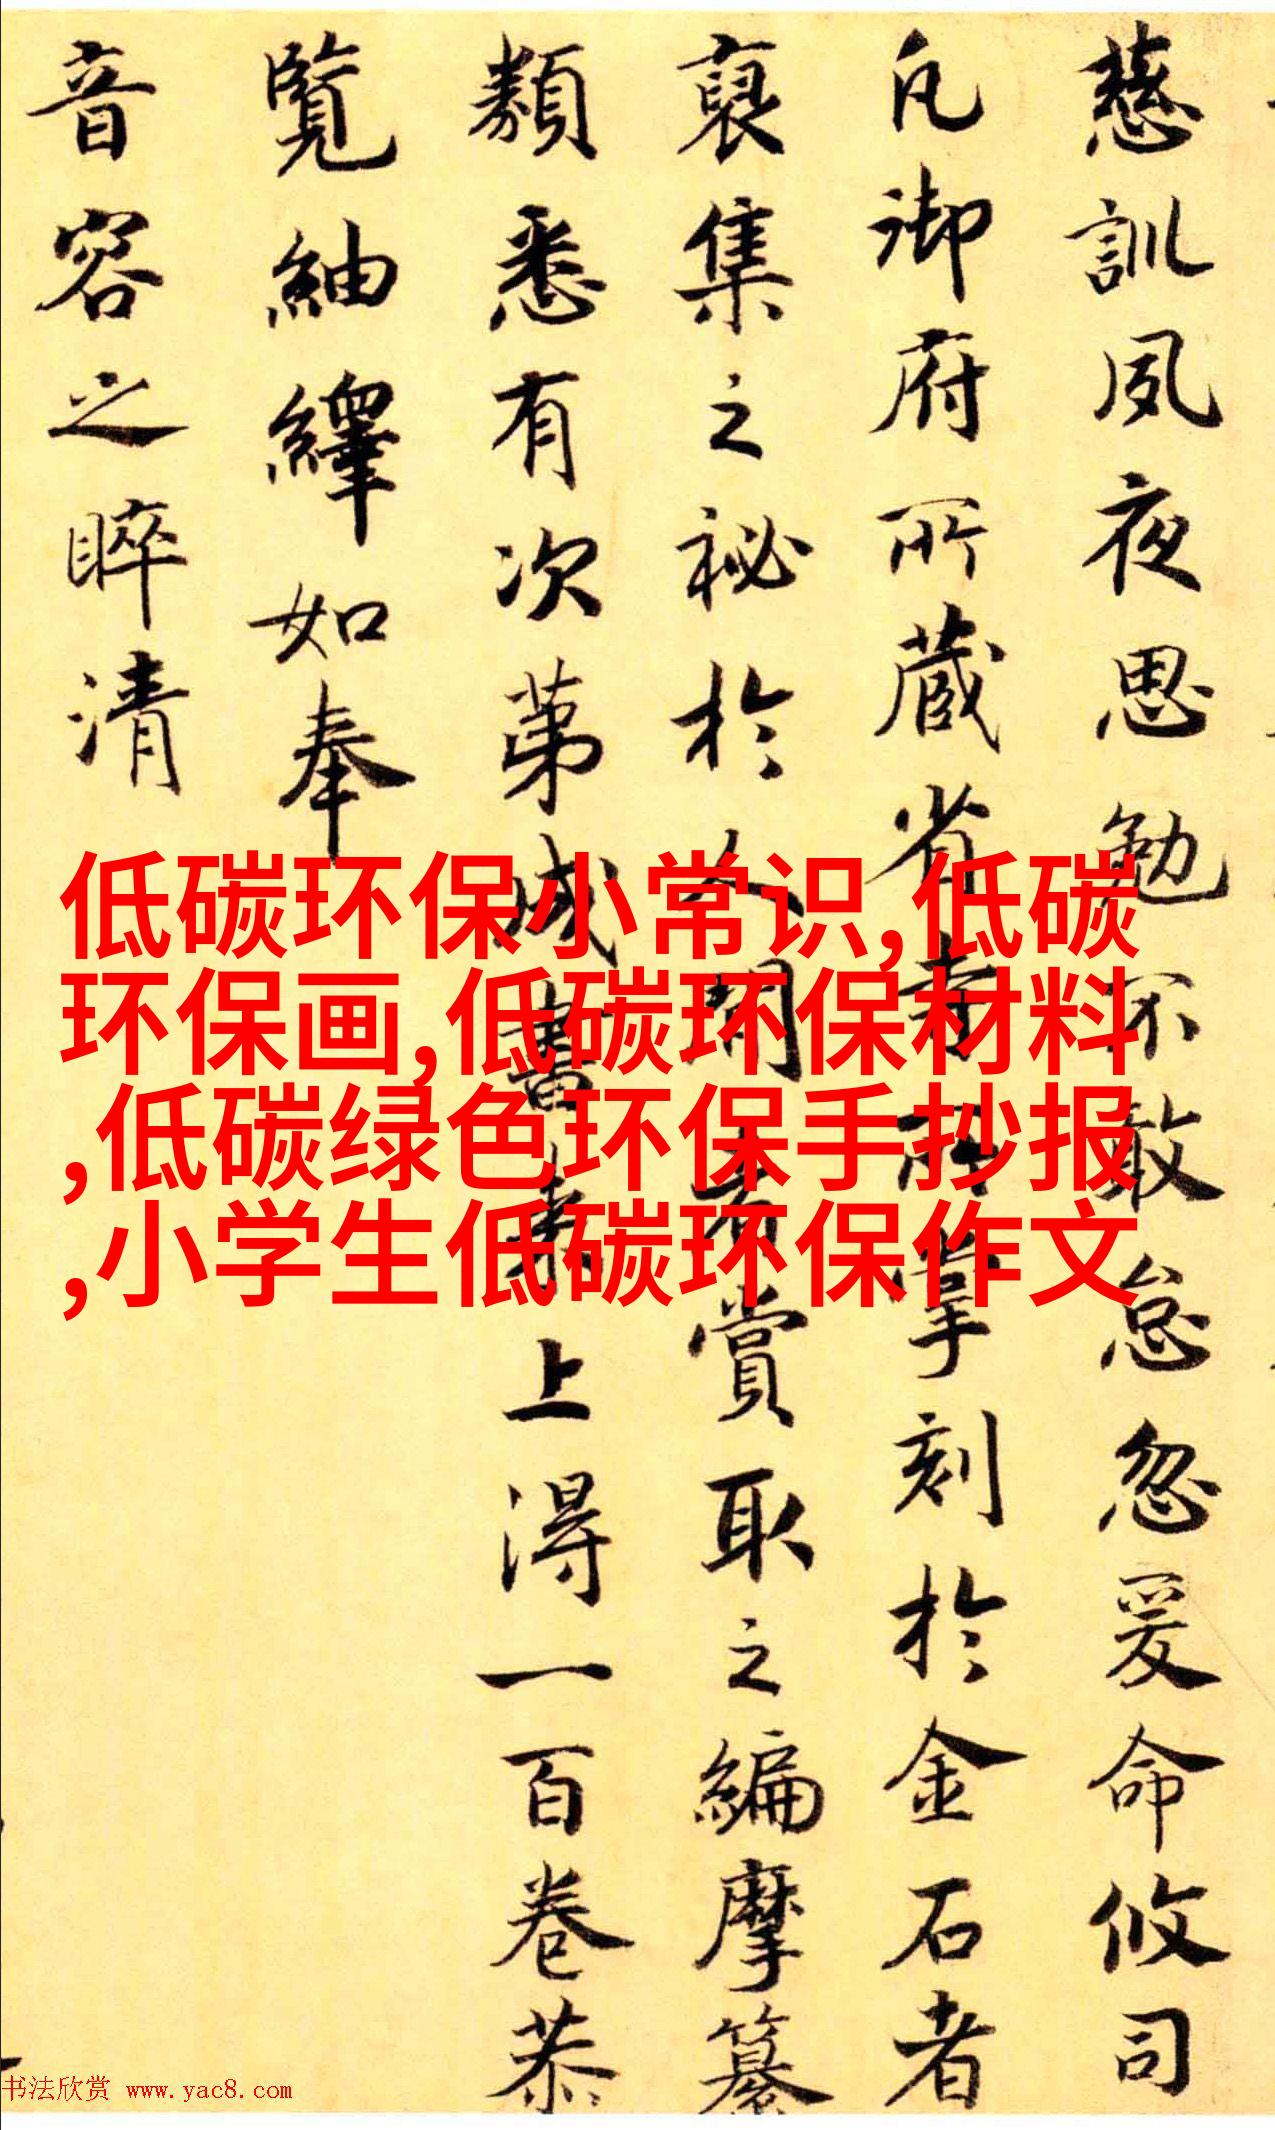 慈訓夙夜思勉不敢怠忽爰命攸司
凡御府所蔵省寺所掌刻於金石者
裒集之祕於人間者賞取之編摩纂
類悉有次第成書來上得一百卷恭
覽紬繹如奉
音容之睟清
低碳环保小常识,低碳
环保画,低碳环保材料
,低碳绿色环保手抄报
,小学生低碳环保作文
书法欣赏 www.yac8.com